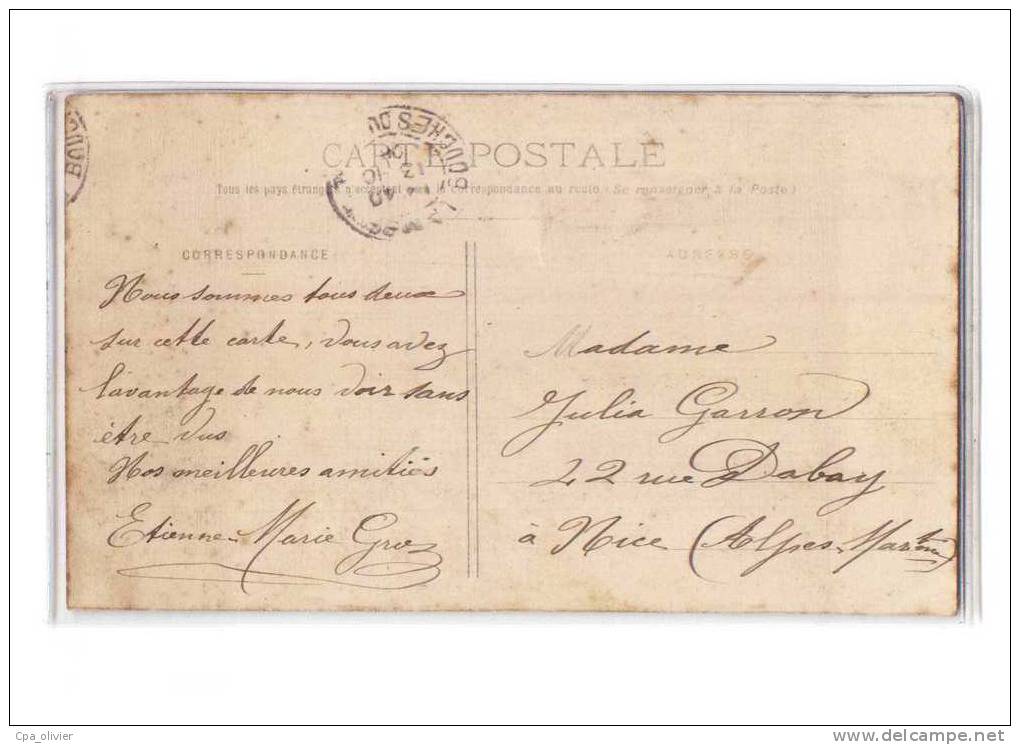 CARTE POSTALE
Tous les pays étrangers n'acceptent pas la correspondance au recto (Se renseigner à la Poste)
BOUCHES DU
BOUC
CORRESPONDANCE
ADRESSE
Nous sommes tous deux
sur cette carte, vous avez
l'avantage de nous voir sans
être vus
Nos meilleures amitiés
Etienne Marie Groz
Madame
Julia Garron
22 rue Dabay
à Nice (Alpes-Martmes)
Cpa_olivier
delcampe.net